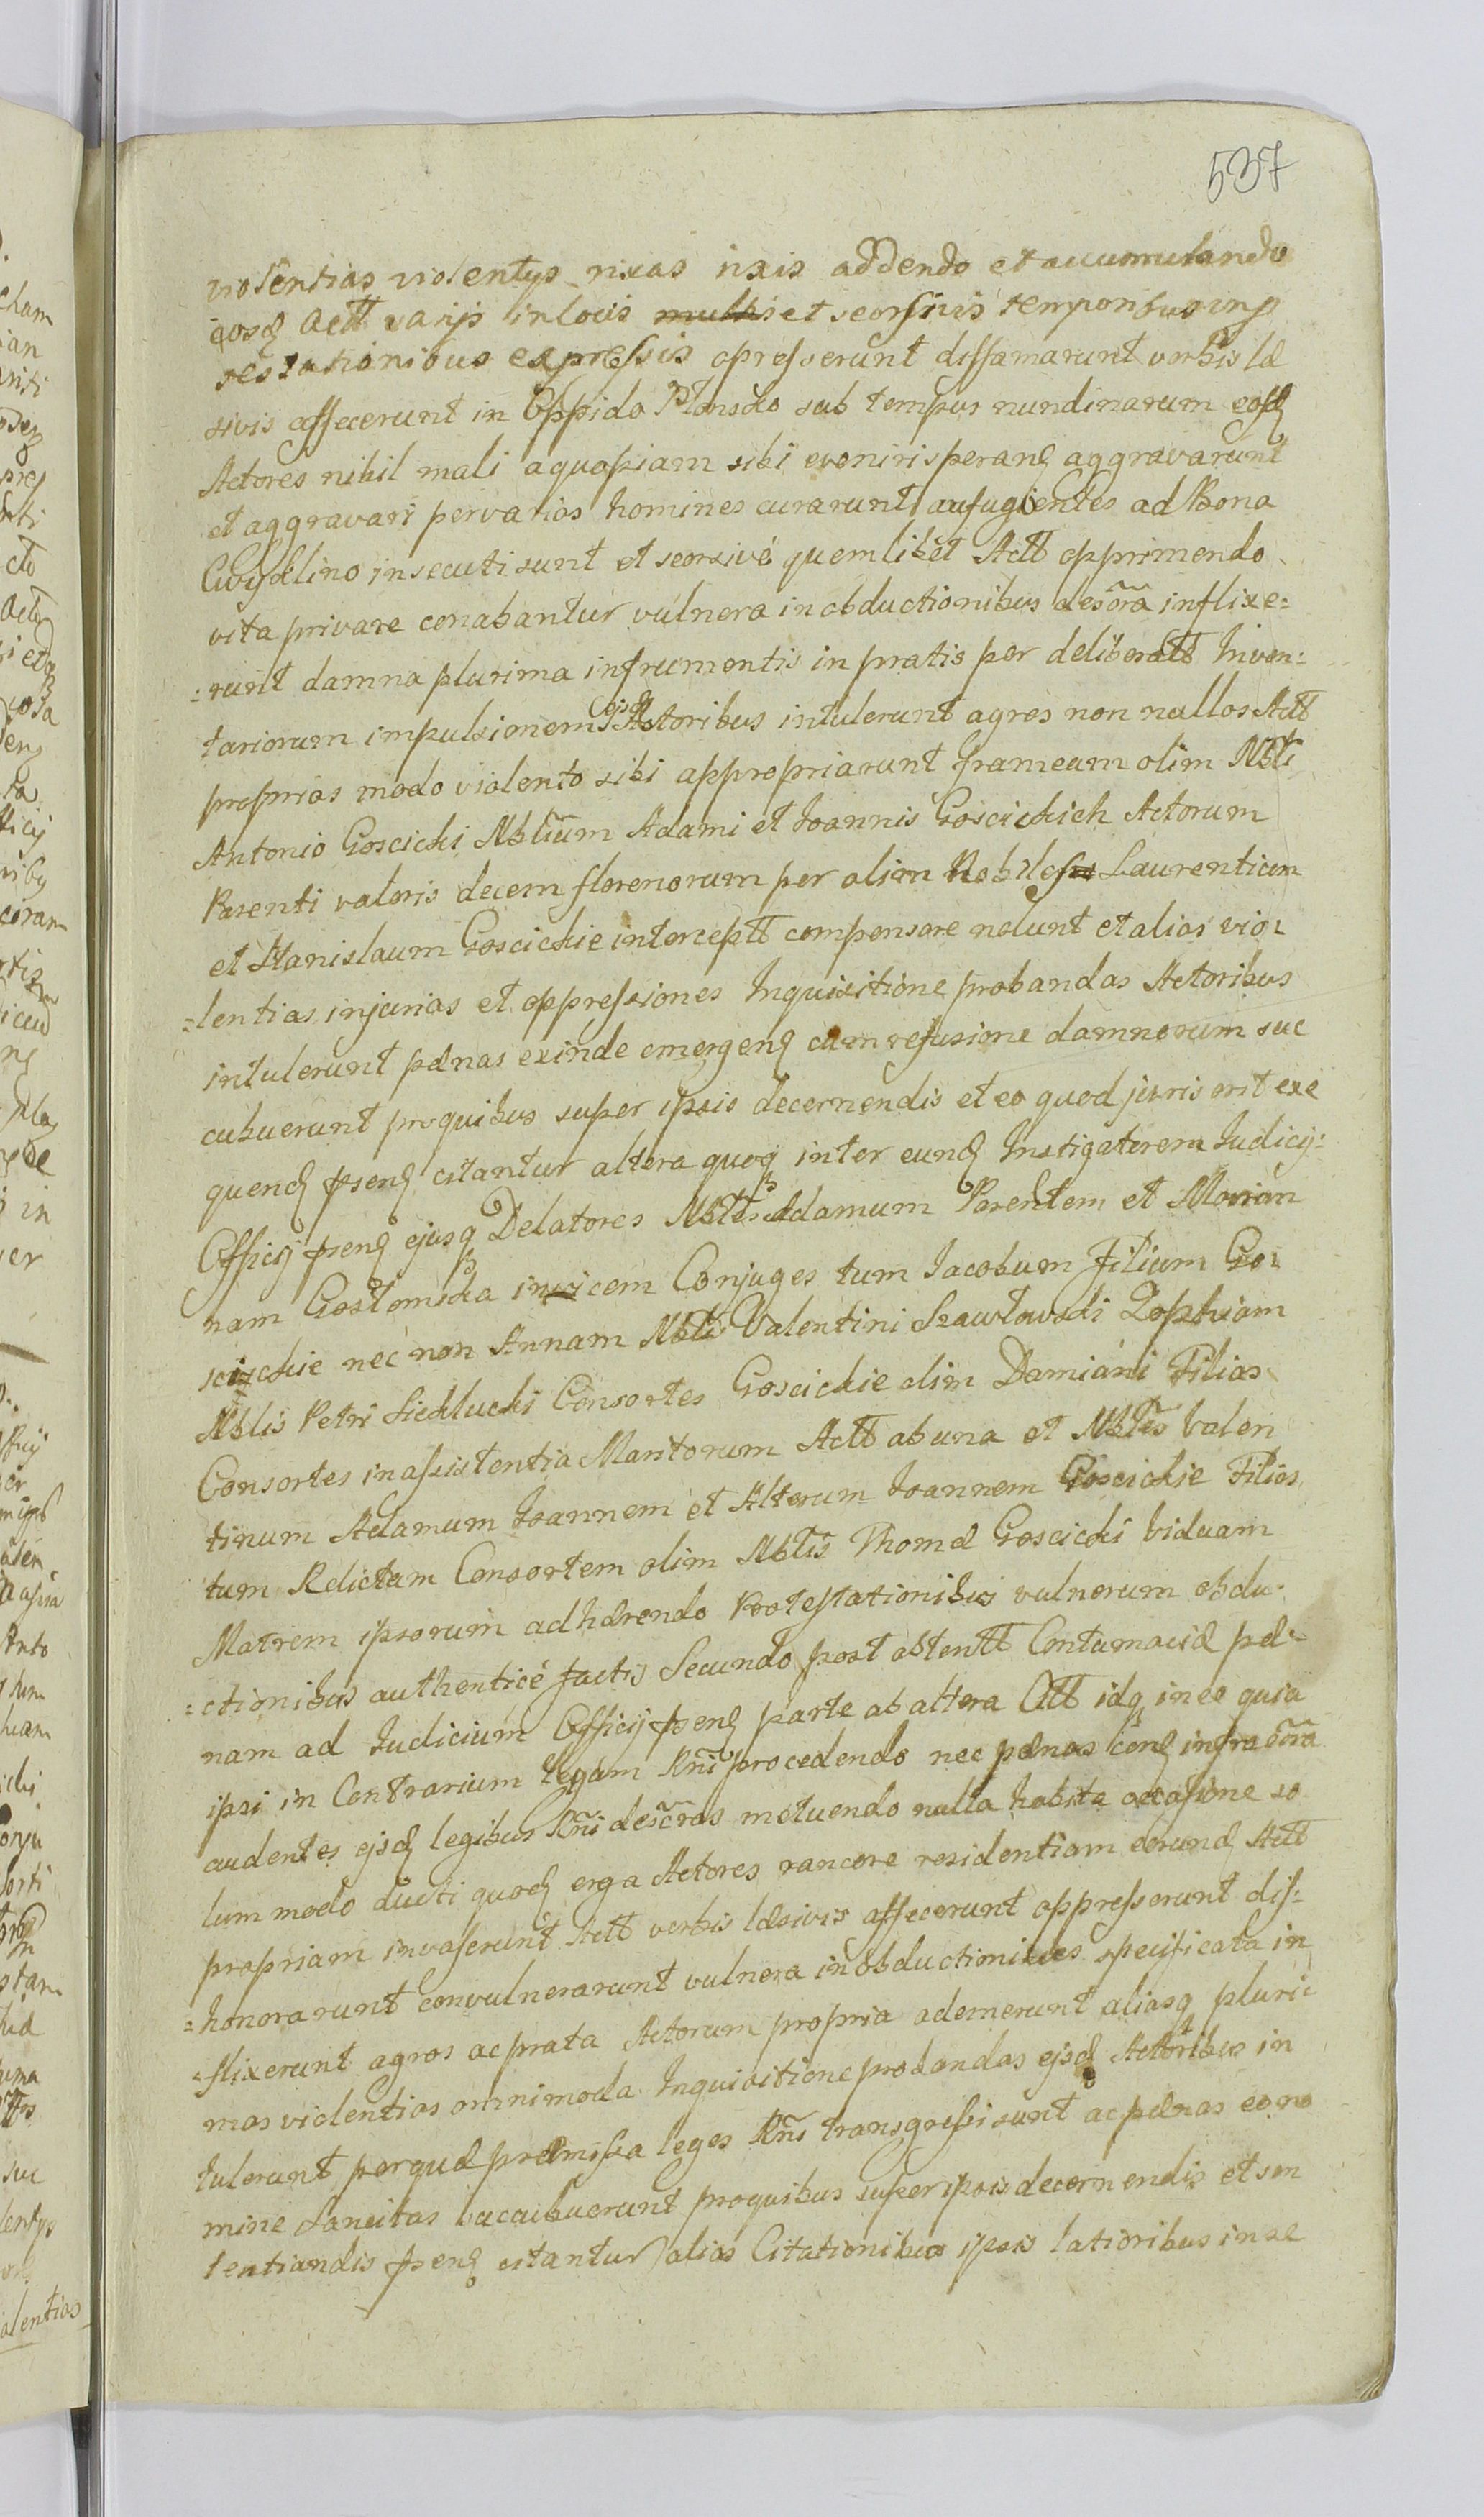 537
violentias violentys rixas rixis addendo et accumulando
eosq Actt varijs in locis multis et seorsivis temporibus in p
testationibus expressis opresserunt diffamarunt verbis læ
sivis affecerunt in Oppido Plonsko sub tempus nundinarum eosd
Actores nihil mali aquopiam sibi eveniri sperang aggravarunt
et aggravari pervarios homines curarunt aufugientes ad Bona
insecuti sunt et seorsivé quemlibet Actt opprimendo
vita privare conabantur vulnera in obductionibus desõra inflixe=
=runt damna plurima infrumentis in pratis per deliberatt Inven=
tariorum impulsionem ijsd Actoribus intulerunt agros non nullos Actt
proprios modo violento sibi appropriarunt frameam olim Nbli
Antonio Goscicki Nblium Adami et Joannis Goscickich Actorum
Parenti valoris decem florenorum per olim Nobiles Laurentium
et Stanislaum Goscickie interceptt compensare nolunt et alias vio=
=lentias injurias et oppressiones Inquisitione probandas Actoribus
intulerunt pænas exinde emergeng cum refusione damnorum suc
cubuerunt proquibus super ipsis decernendis et eo quod juris erit exe
quend pseng citantur altera quoq inter eund Instigatorem Judicij=
Officij pseng ejusq Delatores Nbles Adamum Parentem et Marian
nam Gostomska invicem Conjuges tum Jacobum Filium Go=
scickie nec non Annam Nblis Valentini Szawlowski Zophiam
Nblis Petri Siedlucki Consortes Goscickie olim Damiani Filias
Consortes in assistentia Maritorum Actt ab una et Nbles Valen
tinum Adamum Joannem et Alterum Joannem Goscickie Filios
tum Relictam Consortem olim Nblis Thomæ Goscicki Viduam
Matrem ipsorum adhærendo Protestationibus vulnerum obdu=
=ctionibus authenticé factis Secundo post obtentt Contumaciæ pæ=
nam ad Judicium Officij pseng parte ab altera Citt idq in eo quia
ipsi in Contrarium legum Rñi procedendo nec pænas cong infra õra
audentes ejsd legibus Rñi descras metuendo nulla habita occasione so
lum modo ducti quod erga Actores rancore residentiam eorund Actt
propriam invaserunt Actt verbis læsivis affecerunt oppresserunt dis=
=honorarunt convulnerarunt vulnera in obductionibus specificata in
=flixerunt agros ac prata Actorum propria ademerunt aliasq pluri=
mas violentias omnimoda Inquisitione probandas ejsd Actoribus in
tulerunt per quæ præmissa leges Rñi transgressi sunt ac pænas eo no
mine Sancitas succubuerunt proquibus super ipsis decernendis et sen
tentiandis pseng citantur alias Citationibus ipsis latioribus in se